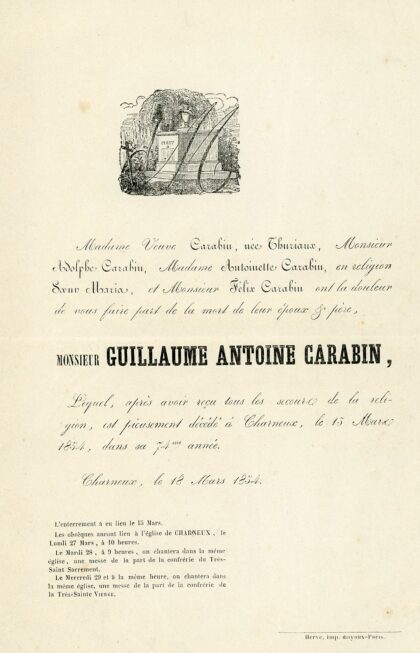 Madame Veuve Carabin, née Thuriaux, Monsieur
Adolphe Carabin, Madame Antoinette Carabin, en religion
Sœur Maria, et Monsieur Félix Carabin ont la douleur
de vous faire part de la mort de leur époux & père,
MONSIEUR GUILLAUME ANTOINE CARABIN,
Lequel, après avoir reçu tous les secours de la reli-
gion, est pieusement décédé à Charneux, le 13 Mars
1854, dans sa 74me année.
Charneux, le 18 Mars 1854.
L'enterrement a eu lieu le 15 Mars.
Les obsèques auront lieu à l'église de CHARNEUX, le
Lundi 27 Mars, à 10 heures.
Le Mardi 28, à 9 heures, on chantera dans la même
église, une messe de la part de la confrérie du Très-
Saint Sacrement.
Le Mercredi 29 et à la même heure, on chantera dans
la même église, une messe de la part de la confrérie de
la Très-Sainte VIERGE.
Herve, imp. Royoux-Paris.